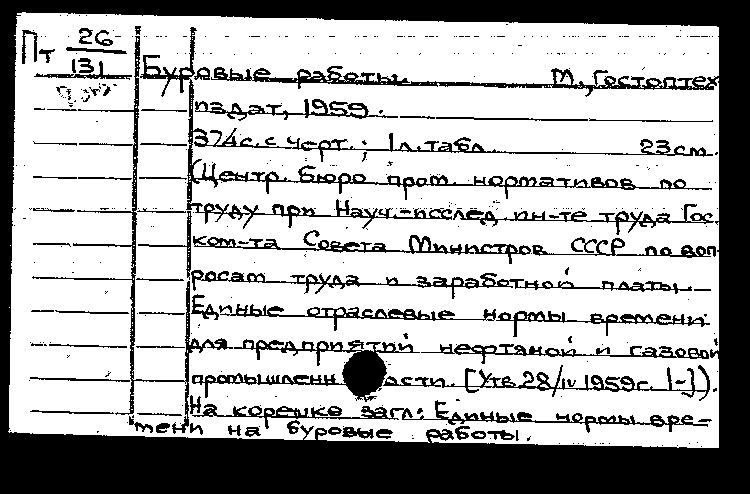 Пт 26/131
Буровые работы. М., Гостоптех
издат, 1959.
374с. с черт.; 1л. табл. 23см.
(Центр. бюро пром. нормативов по
труду при Науч.-исслед. ин-те труда Гос.
ком-та Совета Министров СССР по воп
росам труда и заработной платы.
Единые отраслевые нормы времени
для предприятий нефтяной и газовой
промышленн ости. [Утв. 28/IV 1959г. I-]).
На корешке загл: Единые нормы вре-
мени на буровые работы.